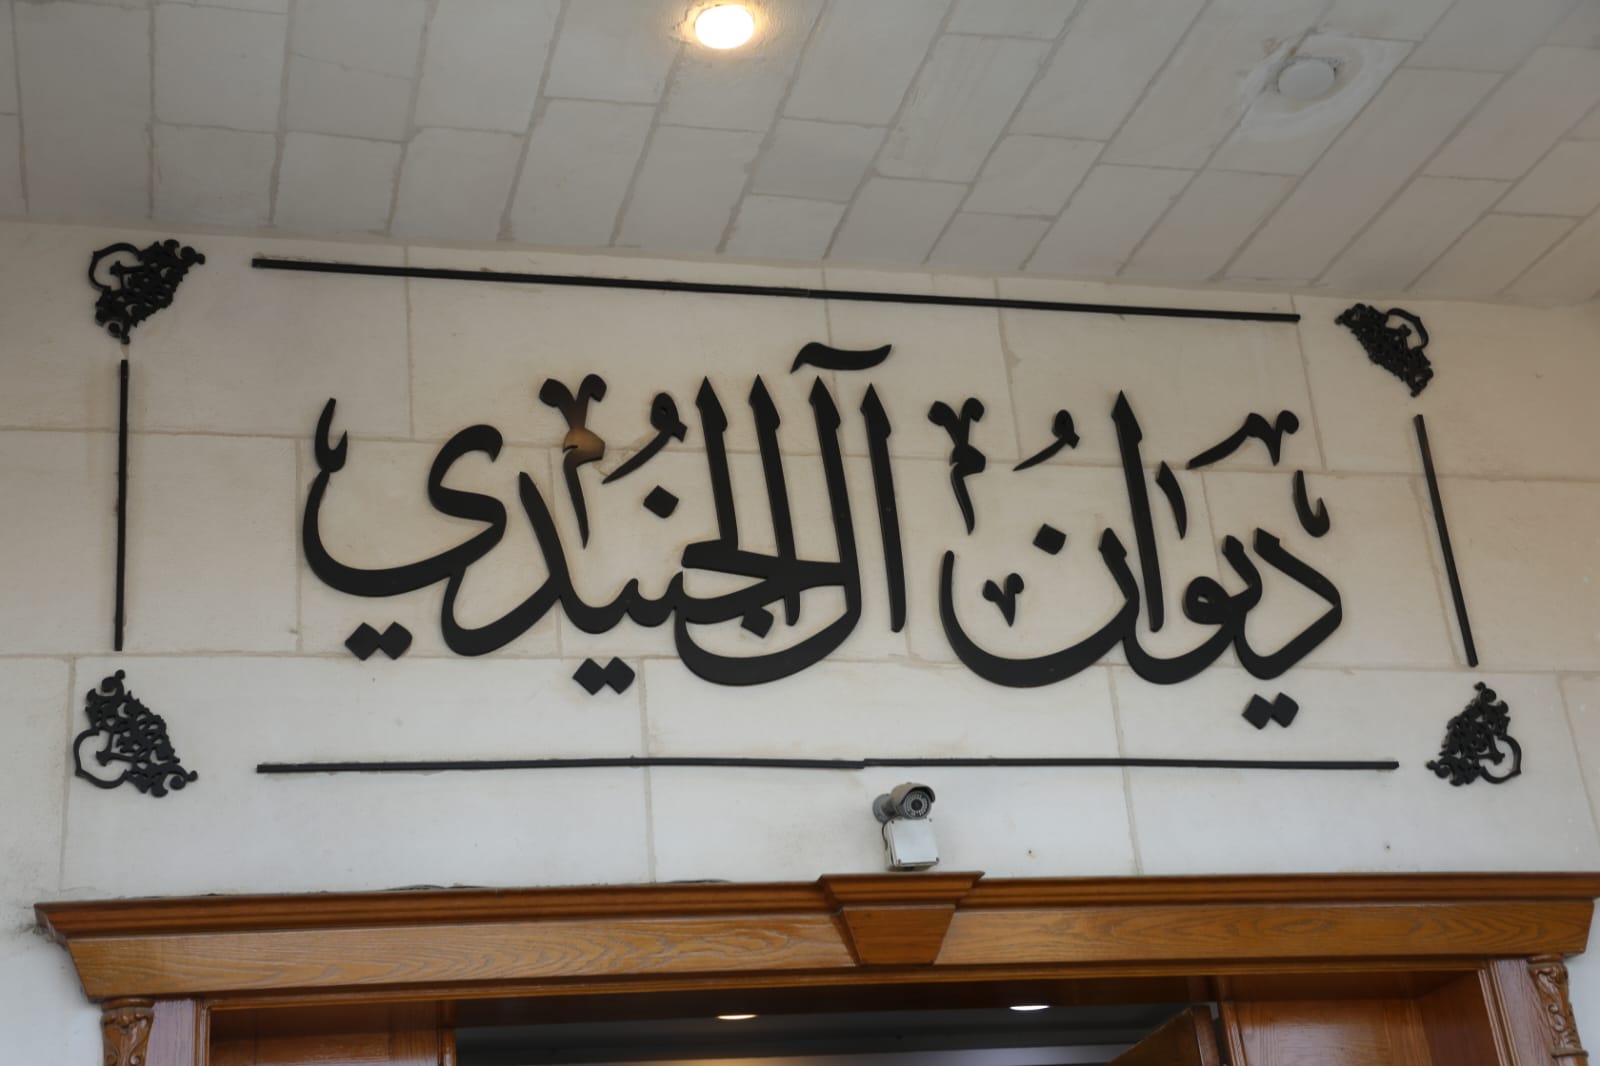 ديوان آل الجنيدي